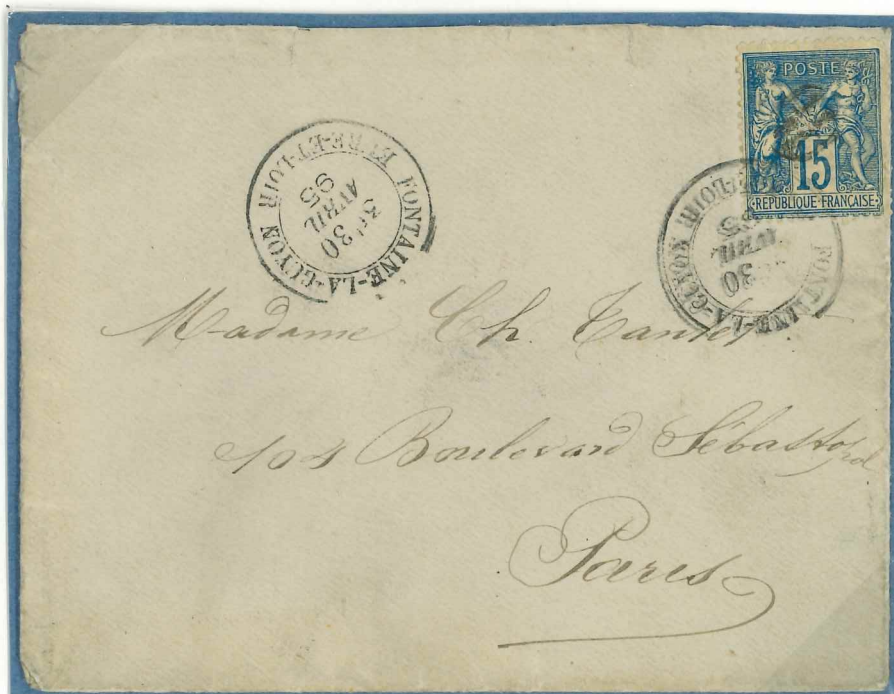 POSTE
15
RÉPUBLIQUE FRANÇAISE
FONTAINE-LA-GUYON EURE-ET-LOIR
3E
30
AVRIL
95
FONTAINE-LA-GUYON
ET-LOIR
30
AVRIL
95
Madame Ch. 
104 Boulevard Sébastopol
Paris